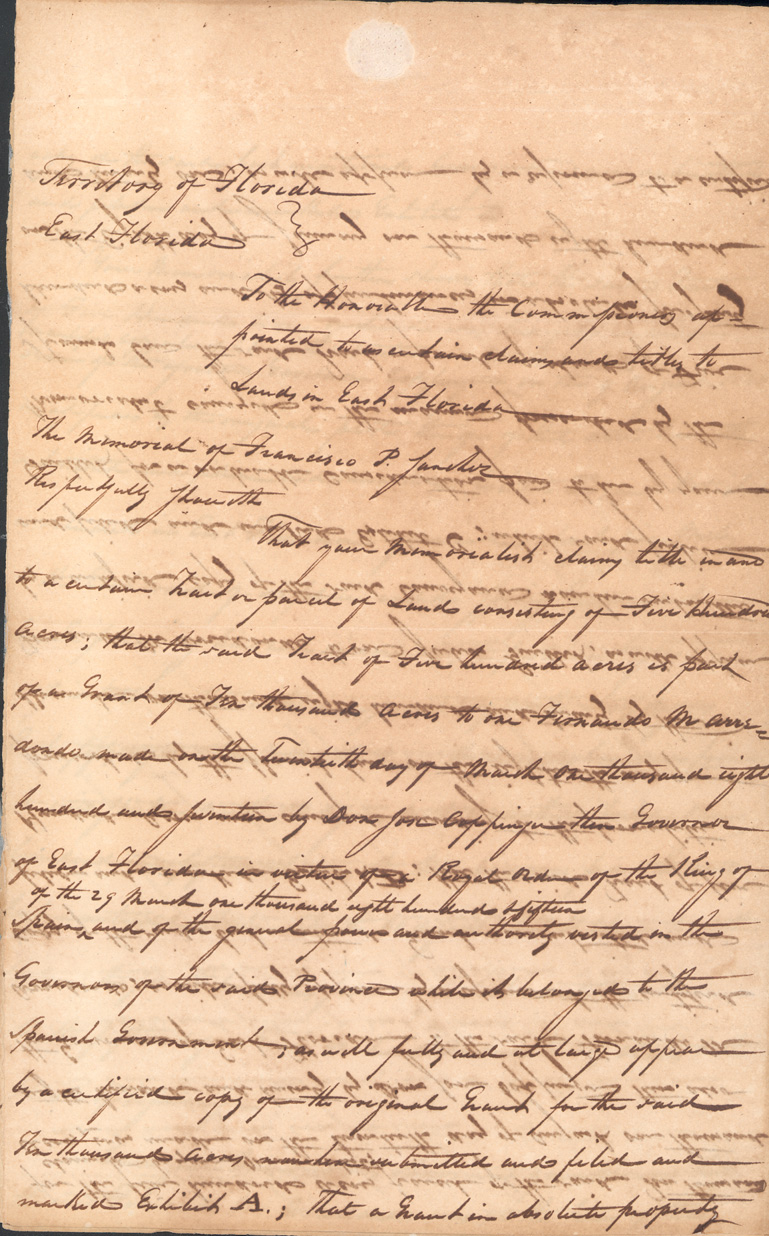 Territory of Florida
East Florida
To the Honorable the Commissioners ap=
pointed to ascertain claims and titles to
Lands in East Florida
The Memorial of Francisco P. Sanchez
Respectfully Sheweth
That your Memorialist claims title in and
to a certain Tract or parcel of Land consisting of Five hundred
acres; that the said Tract of Five hundred acres is part
of a Grant of Ten thousand acres to one Fernando M Arre=
dondo made on the Twentieth day of March one thousand eight
hundred and seventeen by Don Jose Coppinger then Governor
of East Florida in virtue of a Royal Order of the King of
of the 29 March one thousand eight hundred & fifteen
Spain, and of the general power and authority vested in the
Governors of the said Province while it belonged to the
Spanish Government, as will fully and at large appear
by a certified copy of the original Grant for the said
Ten thousand acres submitted and filed and
marked Exhibit A.; That a Grant in absolute property